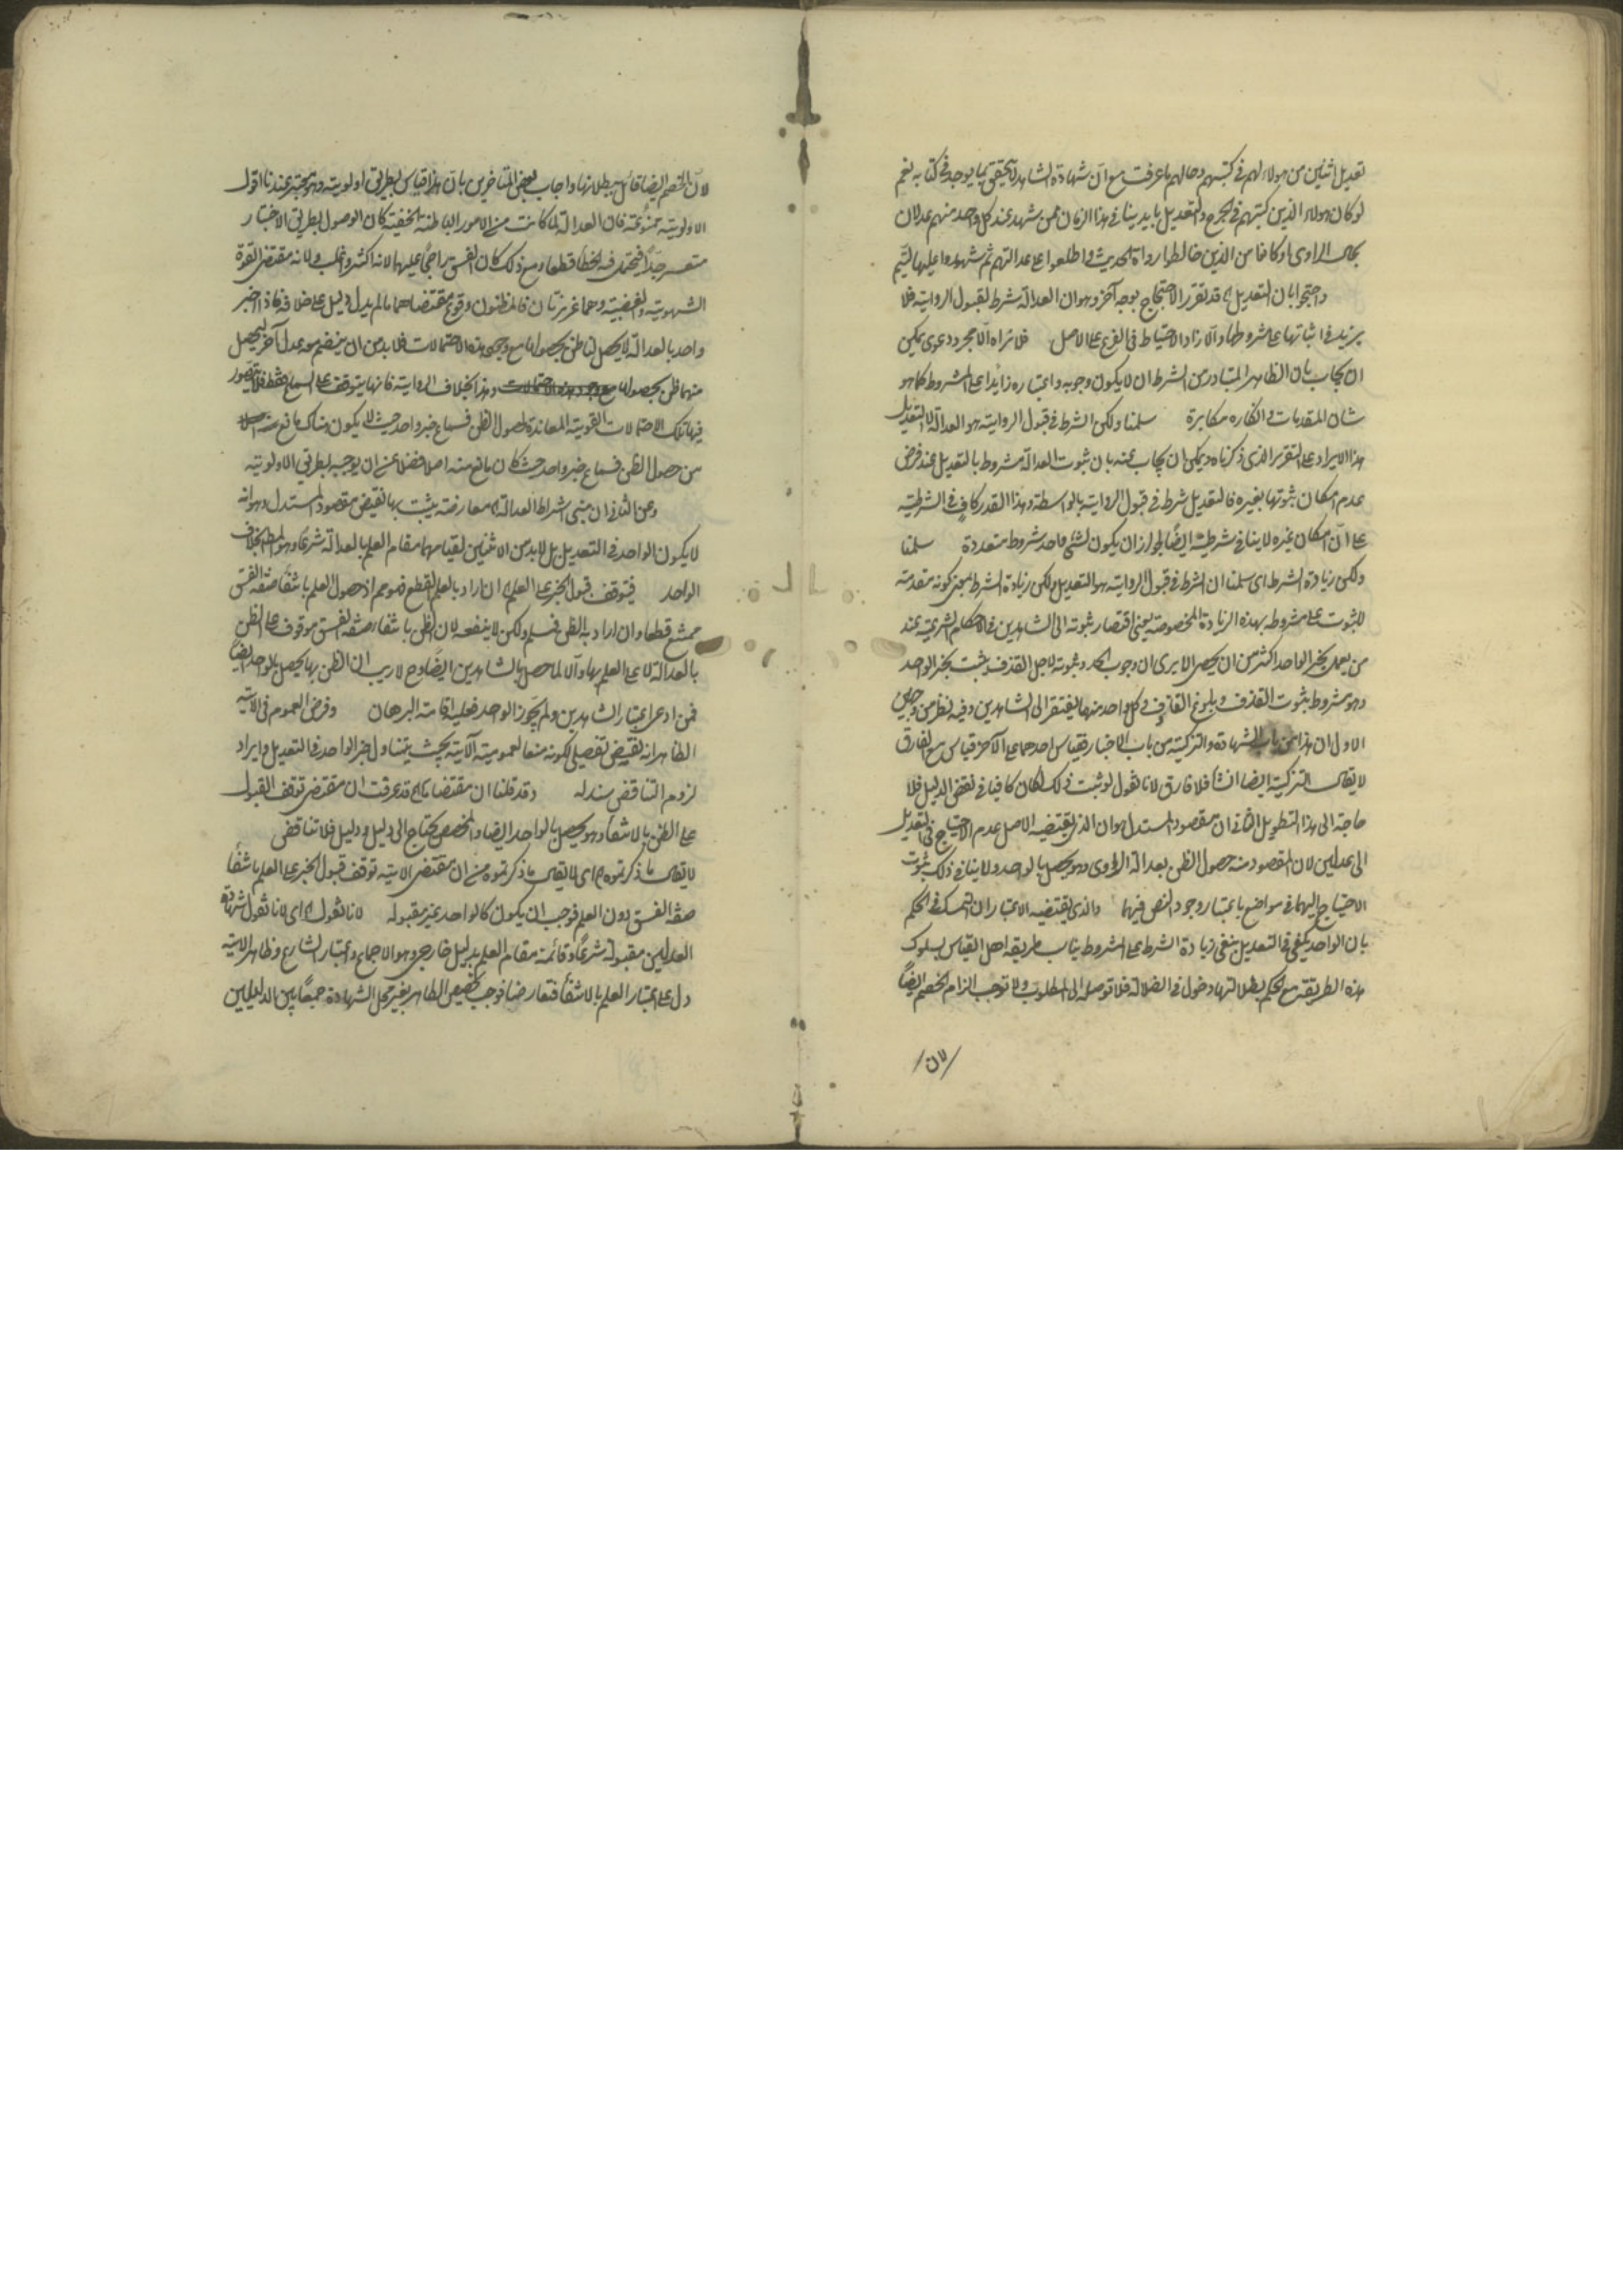 تعديل اثنين من هولاء لهم في كتبهم وحالهم ما عرفت مع ان شهادة الشاهد لا يتحقق بما يوجد في كتابه نعم
لو كان هولاء الذين كتبهم في الجرح والتعديل بايدينا في هذا الزمان ممن شهد عند كل واحد منهم عدلان
بحال الراوي او كانا من الذين خالطوا رواة الحديث واطلعوا على عدالتهم ثم شهدوا عليها ليتم
واحتجوا بان التعديل اه قد تقرر الاحتجاج بوجه آخر وهو ان العدالة شرط لقبول الرواية فلا
يزيد في اثباتها على مشروطها والا زاد الاحتياط في الفرع على الاصل فلا نراه الا مجرد دعوى يمكن
ان يجاب بان الظاهر المتبادر من الشرط ان لا يكون وجوبه واعتباره زايدا على المشروط كما هو
شان المقدمات وانكاره مكابرة سلمنا ولكن الشرط في قبول الرواية هو العدالة لا التعديل
هذا الايراد على التقرير الذي ذكرناه ويمكن ان يجاب عنه بان ثبوت العدالة مشروط بالتعديل عند فرض
عدم امكان ثبوتها بغيره فالتعديل شرط في قبول الرواية بالواسطة وهذا القدر كاف في الشرطية
على ان امكان غيره لا ينافي شرطيته ايضا لجواز ان يكون لشئ واحد شروط متعددة سلمنا
ولكن زيادة الشرط اي سلمنا ان الشرط في قبول الرواية هو التعديل ولكن زيادة الشرط بمعنى كونه مقدمة
للثبوت على مشروطه بهذه الزيادة المخصوصة يعني افتقار ثبوته الى الشاهدين في الاحكام الشرعية عند
من يعمل بخبر الواحد اكثر من ان يحصى الا يرى ان وجوب الحد وثبوته لاجل القذف يثبت بخبر الواحد
وهو مشروط بثبوت القذف وبلوغ القاذف وكل واحد منهما يفتقر الى الشاهدين وفيه نظر من وجهين
الاول ان هذا من باب الشهادة والتزكية من باب الاخبار فقياس احدهما على الآخر قياس مع الفارق
لا يقال التزكية ايضا فلا فارق لانا نقول لو ثبت ذلك لكان كافيا في نقض الدليل فلا
حاجة الى هذا التطويل الثاني ان مقصود المستدل هو ان الذي يقتضيه الاصل عدم الاحتياج في التعديل
الى عدلين لان المقصود منه حصول الظن بعدالة الراوي وهو يحصل بالواحد ولا ينافي ذلك ثبوت
الاحتياج اليهما في مواضع باعتبار وجود النص فيها والذي يقتضيه الاعتبار ان التمسك في الحكم
بان الواحد يكفي في التعديل بنفي زيادة الشرط على المشروط يناسب طريقة اهل القياس بسلوك
هذه الطريقة مع الحكم بضلالتها دخول في الضلالة فلا توصله الى المطلوب ولا توجب الزام الخصم ايضا
لان
لان الخصم ايضا قائل ببطلانها واجاب بعض المتاخرين بان هذا قياس بطريق اولوية وهو حجة عندنا اقول
الاولوية ممنوعة فان العدالة لما كانت من الامور الباطنة الخفية كان الوصول بطريق الاختبار
متعسر جدا فيحتمل فيه الخطا قطعا ومع ذلك كان الفسق راجحا عليها لانه اكثر واغلب ولانه مقتضى القوة
الشهوية والغضبية وهما غريزتان فالمظنون وقوع مقتضاهما ما لم يدل دليل على خلافه فاذا اخبر
واحد بالعدالة لا يحصل لنا ظن بحصولها مع وجود هذه الاحتمالات فلا بد من ان ينضم معه عدل آخر ليحصل
منهما ظن بحصولها مع وجود هذه الاحتمالات وهذا بخلاف الرواية فانها يتوقف على السماع فقط فلا يتصور
فيها تلك الاحتمالات القوية المعاندة لحصول الظن فسماع خبر واحد حيث لا يكون هناك مانع منه اصلا
من حصول الظن فسماع خبر واحد حيث كان مانع منه اصلا فضلا عن ان يوجبه بطريق الاولوية
وعن الثاني ان مبنى اشتراط العدالة اه معارضة يثبت بها نقيض مقصود المستدل وهو انه
لا يكون الواحد في التعديل بل لا بد من الاثنين لقيامهما مقام العلم بالعدالة شرعا وهو المط بخلاف
الواحد فيتوقف قبول الخبر على العلم اه ان اراد بالعلم القطع فهو مم اذ حصول العلم بانتفاء صفة الفسق
ممتنع قطعا وان اراد به الظن فمسلم ولكن لا ينفعه لان الظن بانتفاء صفة الفسق موقوف على الظن
بالعدالة لا على العلم بها والا لما حصل بالشاهدين ايضا وح لا ريب ان الظن بها يحصل بالواحد ايضا
فمن ادعى اعتبار الشاهدين ولم يجوز الواحد فعليه اقامة البرهان وفرض العموم في الاية
الظاهر انه نقيض تفصيلي لكونه منعا لعمومية الآية بحيث يتناول خبر الواحد في التعديل وايراد
لزوم التناقض سند له وقد قلنا ان مقتضاها اه قد عرفت ان مقتضى توقف القبول
على الظن بالانتفاء وهو يحصل بالواحد ايضا والمخصص يحتاج الى دليل ودليل فلا تناقض
لا يقال ما ذكرتموه اه اي لا يقال ما ذكرتموه من ان مقتضى الاية توقف قبول الخبر على العلم بانتفاء
صفة الفسق دون العلم فوجب ان يكون كالواحد غير مقبولة لانا نقول اه اي لانا نقول شهادة
العدلين مقبولة شرعا وقائمة مقام العلم بدليل خارجي وهو الاجماع واعتبار الشارع وظاهر الاية
دل على اعتبار العلم بالانتفاء فتعارضا فوجب تخصيص الظاهر بغير محل الشهادة جمعا بين الدليلين